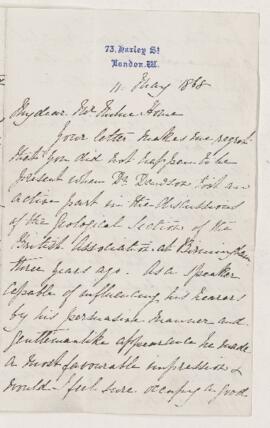 73, Harley St
London. W.
11 May 1868
My dear Mr Milne Home
Your letter makes me regret
that you did not happen to be
present when Dr. Davidson took an
active part in the discussions
of the Geological Section of the
British Association at Birmingham
three years ago. As a speaker
capable of influencing his hearers
by his persuasive manner and
gentlemanlike appearance he made
a most favourable impression &
would I feel sure occupy a good